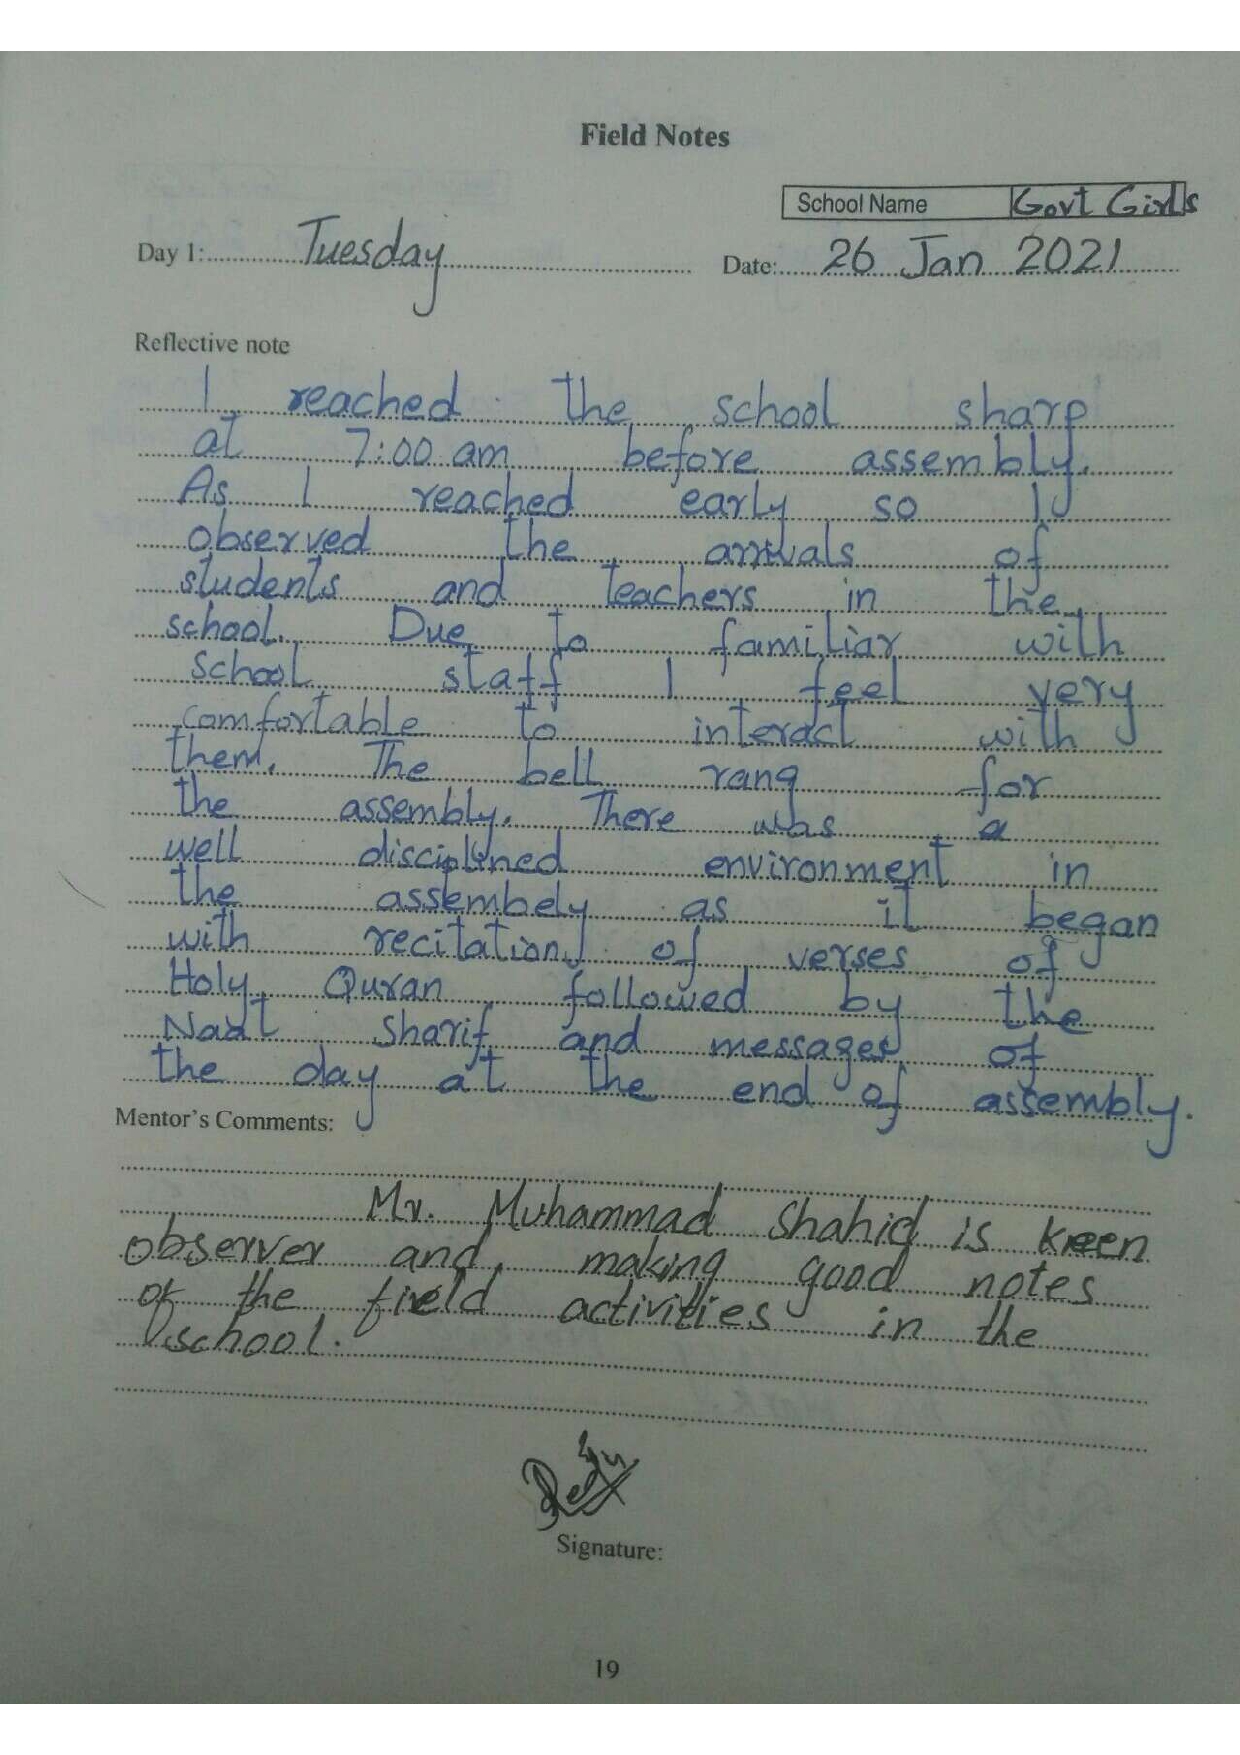 Field Notes
School Name Govt Girls
Day 1: Tuesday Date: 26 Jan 2021
Reflective note
I reached the school sharp
at 7:00 am before assembly.
As I reached early so I
observed the arrivals of
students and teachers in the
school. Due to familiar with
school staff I feel very
comfortable to interact with
them. The bell rang for
the assembly. There was a
well disciplined environment in
the assembely as it began
with recitation of verses of
Holy Quran followed by the
Naat Sharif and messages of
the day at the end of assembly.
Mentor's Comments:
Mr. Muhammad Shahid is keen
observer and making good notes
of the field activities in the
school.
Signature:
19